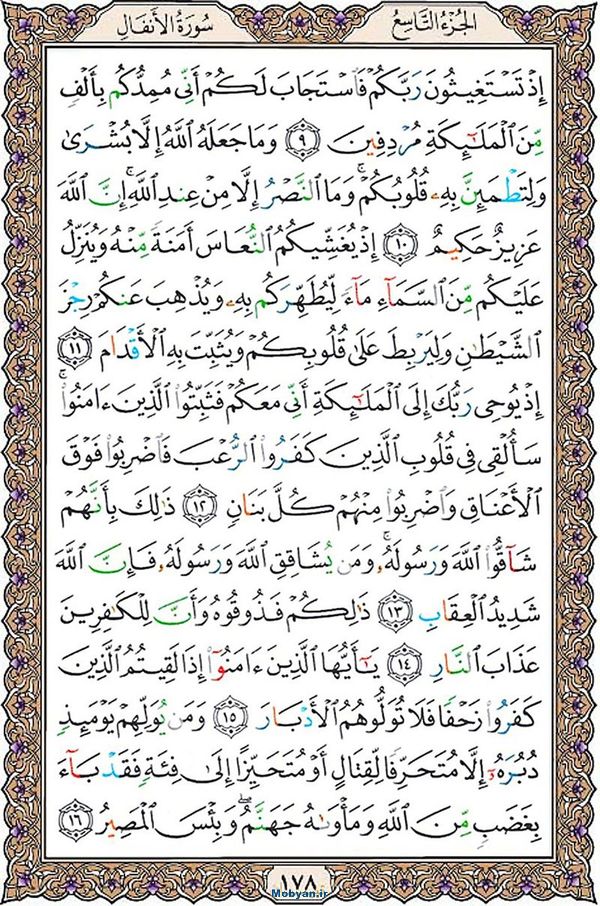 الجزء التاسع
سورة الأنفال
إِذۡ تَسۡتَغِيثُونَ رَبَّكُمۡ فَٱسۡتَجَابَ لَكُمۡ أَنِّي مُمِدُّكُم بِأَلۡفٖ
مِّنَ ٱلۡمَلَٰٓئِكَةِ مُرۡدِفِينَ ٩ وَمَا جَعَلَهُ ٱللَّهُ إِلَّا بُشۡرَىٰ
وَلِتَطۡمَئِنَّ بِهِۦ قُلُوبُكُمۡۚ وَمَا ٱلنَّصۡرُ إِلَّا مِنۡ عِندِ ٱللَّهِۚ إِنَّ ٱللَّهَ
عَزِيزٌ حَكِيمٌ ١٠ إِذۡ يُغَشِّيكُمُ ٱلنُّعَاسَ أَمَنَةٗ مِّنۡهُ وَيُنَزِّلُ
عَلَيۡكُم مِّنَ ٱلسَّمَآءِ مَآءٗ لِّيُطَهِّرَكُم بِهِۦ وَيُذۡهِبَ عَنكُمۡ رِجۡزَ
ٱلشَّيۡطَٰنِ وَلِيَرۡبِطَ عَلَىٰ قُلُوبِكُمۡ وَيُثَبِّتَ بِهِ ٱلۡأَقۡدَامَ ١١
إِذۡ يُوحِي رَبُّكَ إِلَى ٱلۡمَلَٰٓئِكَةِ أَنِّي مَعَكُمۡ فَثَبِّتُواْ ٱلَّذِينَ ءَامَنُواْۚ
سَأُلۡقِي فِي قُلُوبِ ٱلَّذِينَ كَفَرُواْ ٱلرُّعۡبَ فَٱضۡرِبُواْ فَوۡقَ
ٱلۡأَعۡنَاقِ وَٱضۡرِبُواْ مِنۡهُمۡ كُلَّ بَنَانٖ ١٢ ذَٰلِكَ بِأَنَّهُمۡ
شَآقُّواْ ٱللَّهَ وَرَسُولَهُۥۚ وَمَن يُشَاقِقِ ٱللَّهَ وَرَسُولَهُۥ فَإِنَّ ٱللَّهَ
شَدِيدُ ٱلۡعِقَابِ ١٣ ذَٰلِكُمۡ فَذُوقُوهُ وَأَنَّ لِلۡكَٰفِرِينَ
عَذَابَ ٱلنَّارِ ١٤ يَٰٓأَيُّهَا ٱلَّذِينَ ءَامَنُوٓاْ إِذَا لَقِيتُمُ ٱلَّذِينَ
كَفَرُواْ زَحۡفٗا فَلَا تُوَلُّوهُمُ ٱلۡأَدۡبَارَ ١٥ وَمَن يُوَلِّهِمۡ يَوۡمَئِذٖ
دُبُرَهُۥٓ إِلَّا مُتَحَرِّفٗا لِّقِتَالٍ أَوۡ مُتَحَيِّزًا إِلَىٰ فِئَةٖ فَقَدۡ بَآءَ
بِغَضَبٖ مِّنَ ٱللَّهِ وَمَأۡوَىٰهُ جَهَنَّمُۖ وَبِئۡسَ ٱلۡمَصِيرُ ١٦
١٧٨
Mobyan.ir